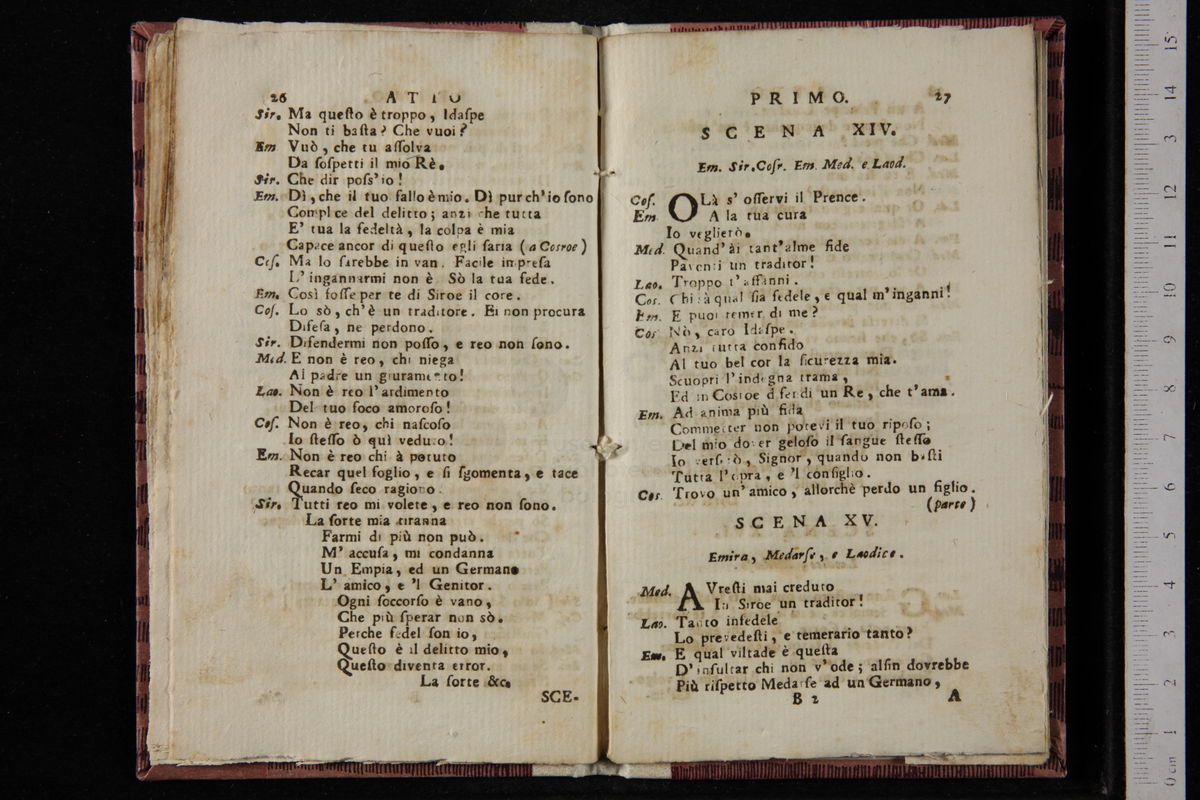 26 ATTO
Sir. Ma queſto è troppo, Idaſpe
Non ti baſta? Che vuoi?
Em Vuò, che tu aſſolva
Da ſoſpetti il mio Rè.
Sir. Che dir poſs'io!
Em. Dì, che il tuo fallo è mio. Dì pur ch'io ſono
Complice del delitto; anzi che tutta
E' tua la fedeltà, la colpa è mia
Capace ancor di queſto egli ſaria (a Cosroe)
Coſ. Ma lo ſarebbe in van. Facile impreſa
L'ingannarmi non è Sò la tua fede.
Em. Così foſſe per te di Siroe il core.
Coſ. Lo sò, ch'è un traditore. Ei non procura
Difeſa, ne perdono.
Sir. Difendermi non poſſo, e reo non ſono.
Med. E non è reo, chi niega
Al padre un giuramento!
Lao. Non è reo l'ardimento
Del tuo foco amoroſo!
Coſ. Non è reo, chi naſcoſo
Io ſteſſo ò quì veduto!
Em. Non è reo chi à potuto
Recar quel foglio, e ſi ſgomenta, e tace
Quando ſeco ragiono.
Sir. Tutti reo mi volete, e reo non ſono.
La ſorte mia tiranna
Farmi di più non può.
M' accuſa, mi condanna
Un Empia, ed un Germano
L' amico, e 'l Genitor.
Ogni ſoccorſo è vano,
Che più ſperar non sò.
Perche fedel ſon io,
Queſto è il delitto mio,
Queſto diventa error.
La ſorte &c.
SCE-
PRIMO. 27
SCENA XIV.
Em. Sir. Coſr. Em. Med. e Laod.
Coſ. OLà s' oſſervi il Prence.
Em. A la tua cura
Io veglierò.
Med. Quand' ài tant'alme fide
Paventi un traditor!
Lao. Troppo t'affanni.
Cos. Chi sà qual ſia fedele, e qual m'inganni!
Em. E puoi temer di me?
Cos Nò, caro Idaſpe.
Anzi tutta confido
Al tuo bel cor la ſicurezza mia.
Scuopri l'indegna trama,
Ed in Cosroe difendi un Re, che t'ama.
Em. Ad anima più fida
Commetter non potevi il tuo ripoſo;
Del mio dover geloſo il ſangue ſteſſo
Io verſerò, Signor, quando non baſti
Tutta l'opra, e 'l conſiglio.
Cos. Trovo un'amico, allorchè perdo un figlio.
(parte)
SCENA XV.
Emira, Medarſe, e Laodice.
Med. AVreſti mai creduto
In Siroe un traditor!
Lao. Tanto infedele
Lo prevedeſti, e temerario tanto?
Em. E qual viltade è queſta
D'inſultar chi non v'ode; alfin dovrebbe
Più riſpetto Medarſe ad un Germano,
B 2 A
15
14
13
12
11
10
9
8
7
6
5
4
3
2
1
0 cm